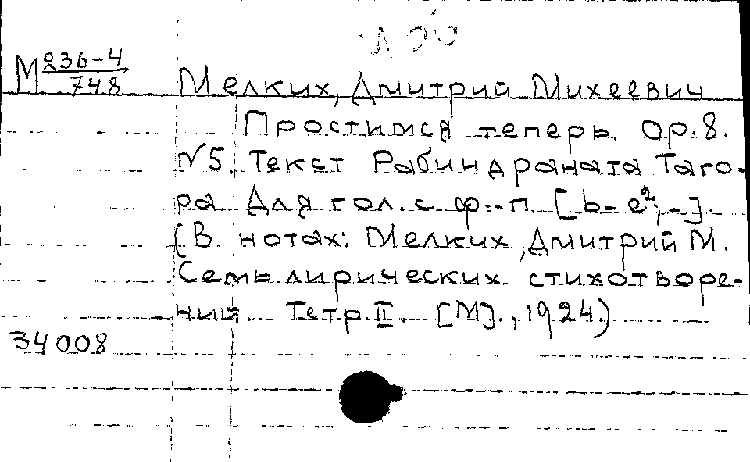 М 236-4/748
Мелких, Дмитрий Михеевич
Простимся теперь. Ор.8.
№5. Текст Рабиндраната Таго-
ра Для гол. с ф.-п. [b-e²; -].
(В нотах: Мелких, Дмитрий М.
Семь лирических стихотворе-
ний. Тетр. II. [М]., 1924.)
34008